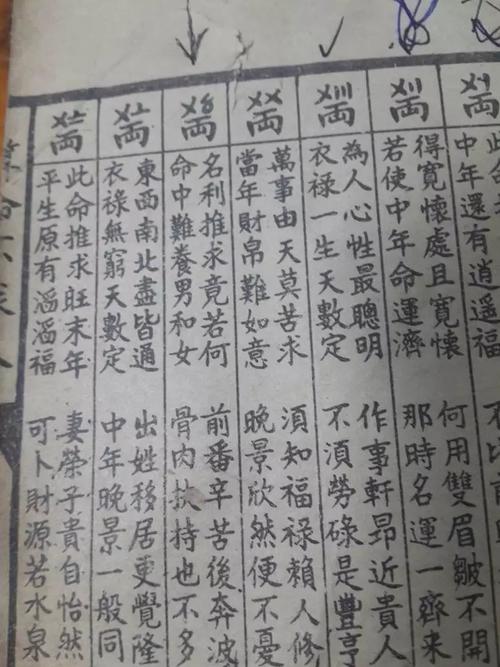 〤〡両
中年還有逍遥福 不比
〤〢両
得寬懷處且寬懷 何用雙眉皺不開
若使中年命運濟 那時名運一齊來
〤〣両
為人心性最聰明 作事軒昂近貴人
衣祿一生天數定 不須勞碌是豐亨
〤〤両
萬事由天莫苦求 須知福祿賴人修
當年財帛難如意 晚景欣然便不憂
〤〥両
名利推求竟若何 前番辛苦後奔波
命中難養男和女 骨肉扶持也不多
〤〦両
東西南北盡皆通 出姓移居更覺隆
衣祿無窮天數定 中年晚景一般同
〤〧両
此命推求旺末年 妻榮子貴自怡然
平生原有滔滔福 可卜財源若水泉